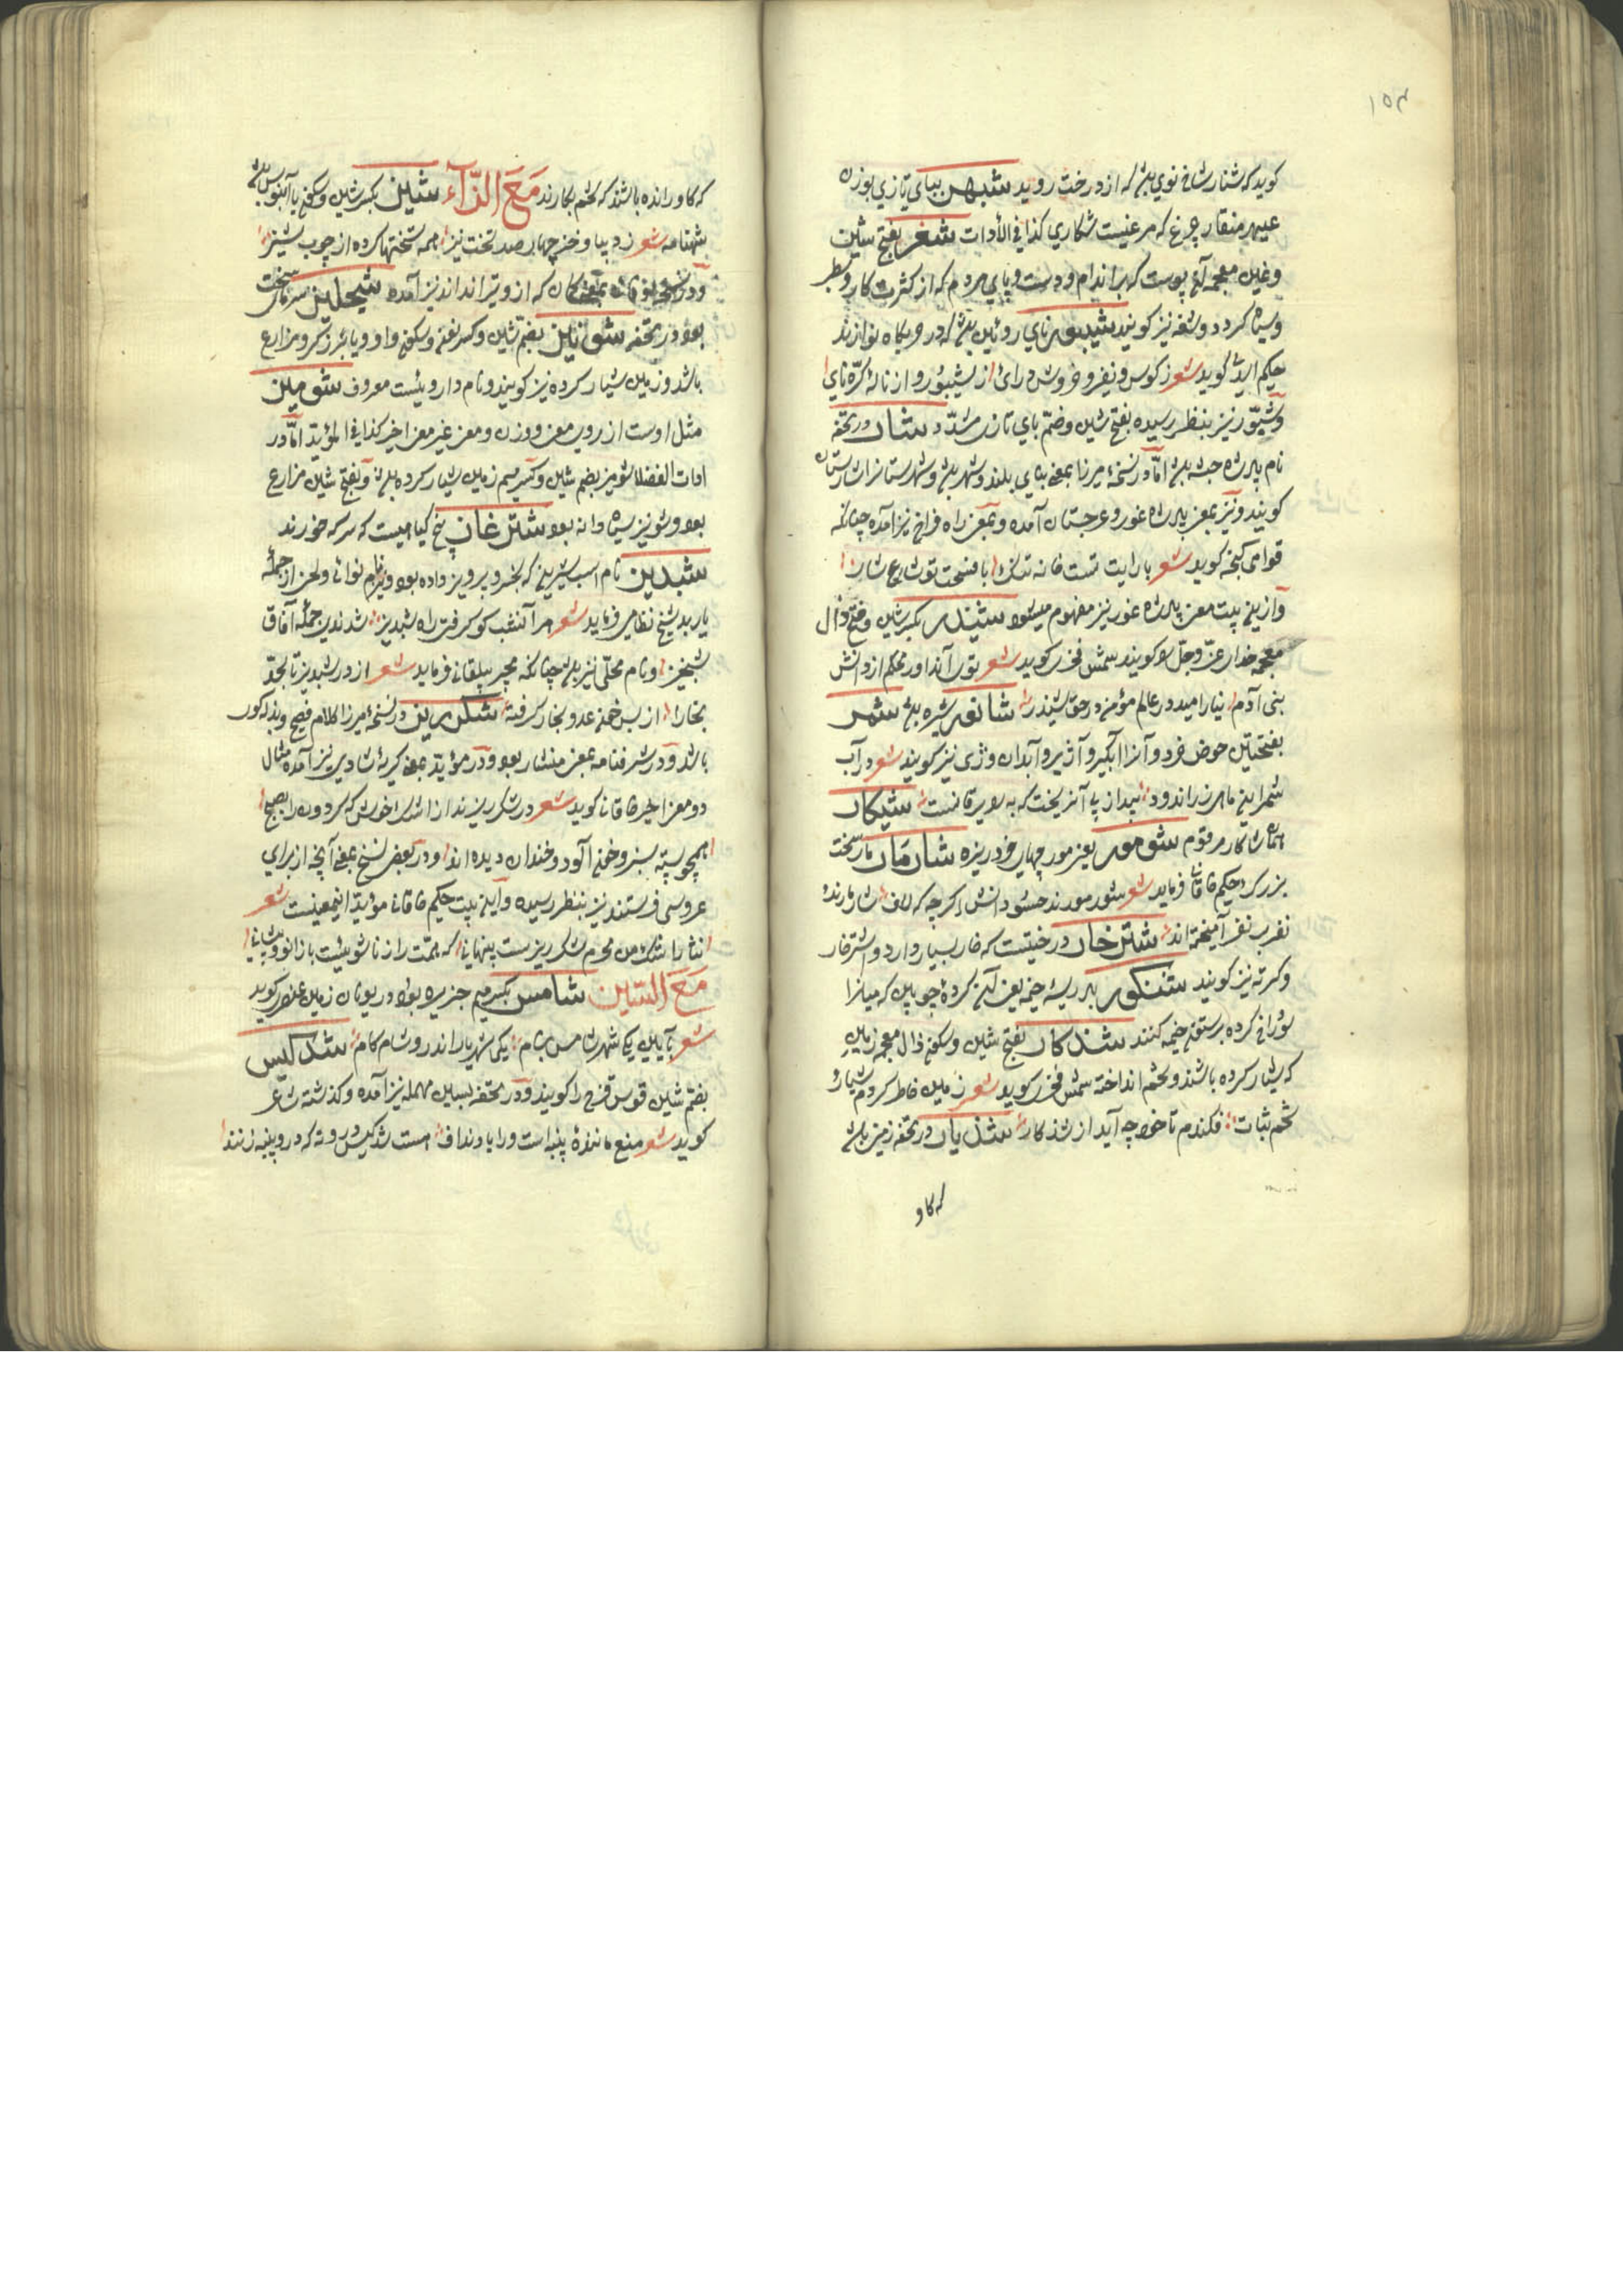 ۱۵۳
کوید که شنار شاخ نوی باشد که از درخت روید شبهر ببای تازی بوزن
عیبهر منقار چرغ که مرغیست شکاری کذا فی الأدات شغر بفتح شین
وغین معجمه آن پوست که براندام ودست وپای مردم که از کثرت کار وسطبر
وسیاه کردد وشغه نیز کویند شیپور نای روئین باشد که در حربکاه نوازند
حکیم اسدی کوید شعر ز کوس ونفیر وخروش درای از شیپور واز ناله کرّه نای
وشپّور نیز بنظر رسیده بفتح شین وضمّ بای تازی مشدّد شار در تحفه
نام پادشاه حبشه باشد امّا در نسخهٔ میرزا بمعنی بنای بلند وشهر باشد وشهرستانرا شارستان
کویند ونیز بمعنی پادشاه غور وغرجستان آمده وبمعنی راه فراخ نیز آمده چنانکه
قوامی کنجه کوید شعر با رایت تست خانه تنک با فسحت تو شارع شار
وازین بیت معنی پادشاه غور نیز مفهوم میشود شیذر بکسر شین وفتح ذال
معجمه خدای عزّ وجلّ را کویند شمس فخری کوید شعر توی آن داور محکم از دانش
بنی آدم نیارامید در عالم مؤمن در حق شیذر شانور شیره باشد شمر
بفتحتین حوض خرد وآنرا آبکیر وآژیر وآبدان وژی نیز کویند شعر در آب
شیکار
همان شاکار مرقوم شومور یعنی مورچهای خرد ریزه شارمار مار سخت
بزرک حکیم خاقانی فرماید شعر
نغرب نغر آمیخته اند شترخار درختیست که خار بسیار دارد واشترخار
وکرته نیز کویند شنکور بادریسهٔ خیمه یعنی آن کردهٔ چوبین که میانرا
سوراخ کرده بر ستون خیمه کنند شدکار بفتح شین وسکون ذال معجمه زمین
که شیار کرده باشند وتخم انداخته شمس فخری کوید شعر زمین خاطر کردم شیار
تخم ثبات فکندم تا خود چه آید از شذکار شذیار در تحفه زمین باشد
که کاو
که کاو رانده باشند که تخم بکارند مَعَ الزّآء شیز بکسر شین وسکون یا آبنوس باشد
شهنامه شعر ز دیبا وخز چهار صد تخت نیز همه تختها کرده از چوب شیز
ودر نسخه بمعنی کمان که ازو تیر اندازند نیز آمده شیجلیز سرمای سخت
بود در تحفه شونیز بضمّ شین وکسر نون وسکون واو ویا برزکر ومزارع
باشد وزمین شیار کرده نیز کویند ونام داروئیست معروف شومیز
مثل اوست از روی معنی ووزن ومعنی غیر معنی اخیر کذا فی المؤید امّا در
ادات الفضلا شومیز بضم شین وکسر میم زمین شیار کرده باشد وبفتح شین مزارع
بود وشونیز سیاه دانه بود شترغاز بیخ کیاهیست که سرکه خورند
شبدیز نام اسب شیرین که بخسرو پرویز داده بود ونیز نام نوائی ولحن از جملهٔ
باربد شیخ نظامی فرماید شعر مر آنشب کو کرفت راه شبدیز شدندی جمله آفاق
شبخیز ونام محلّی نیز باشد چنانکه مجیر بیلقانی فرماید شعر از در شبدیز تا بحدّ
بخارا از بس خون عدو بخار کرفته شکرریز در نسخهٔ میرزا کلام فصیح وبذله کوی
باشد ودر شرفنامه بمعنی نثار بود ودر مؤید بمعنی کریهٔ شادی نیز آمده مثال
دو معنی اخیر خاقانی کوید شعر در شکر ریزند از اشک خوش که کردونرا بصبح
همچو پسته سبز وخون آلود وخندان دیده اند ودر بعض نسخ بمعنی آنچه از برای
عروسی فرستند نیز بنظر رسیده واین بیت حکیم خاقانی مؤید اینمعنیست شعر
نثار اشک من هر دم شکر ریزیست پنهانی که همّت را زناشوئیست با زانو وپیشانی
مَعَ السّین شامس بکسر میم جزیره بود در یونان زمین عنصری کوید
شعر بآیین یکی شهر شامس بنام یکی شهریار اندرو شادکام شدکیس
بضم شین قوس قزح را کویند ودر تحفه بسین مهمله نیز آمده وکذشته شاعر
کوید شعر میغ مانندهٔ پنبه است ورا باد نداف هست شدکیس درونه که درو پنبه زنند